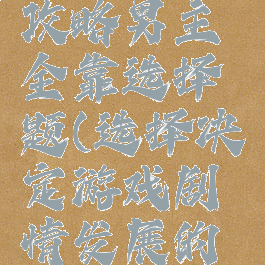 攻略男主
全靠选择
题(选择决
定游戏剧
情发展的